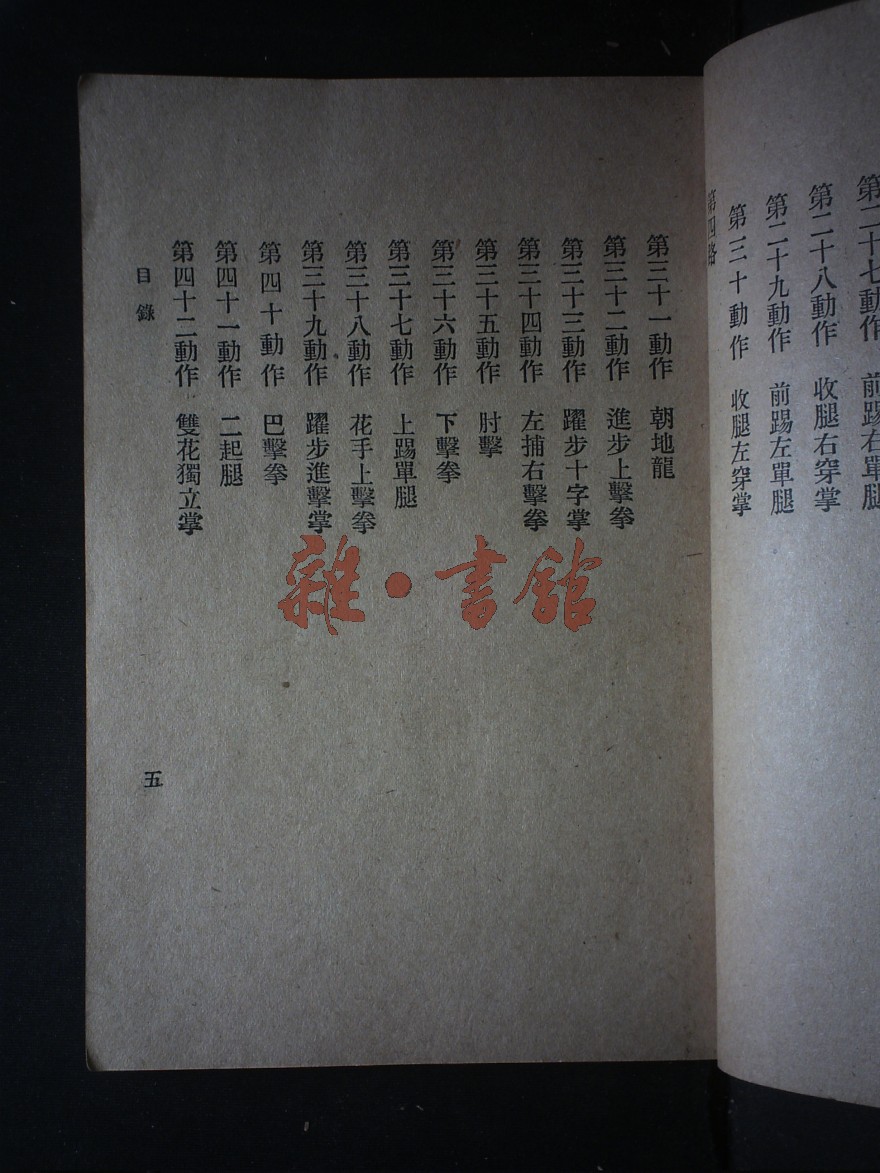 第二十七動作 前踢右單腿
第二十八動作 收腿右穿掌
第二十九動作 前踢左單腿
第三十動作 收腿左穿掌
第四路
第三十一動作 朝地龍
第三十二動作 進步上擊拳
第三十三動作 躍步十字掌
第三十四動作 左捕右擊拳
第三十五動作 肘擊
第三十六動作 下擊拳
第三十七動作 上踢單腿
第三十八動作 花手上擊拳
第三十九動作 躍步進擊掌
第四十動作 巴擊拳
第四十一動作 二起腿
第四十二動作 雙花獨立掌
目錄
五
雜·書館